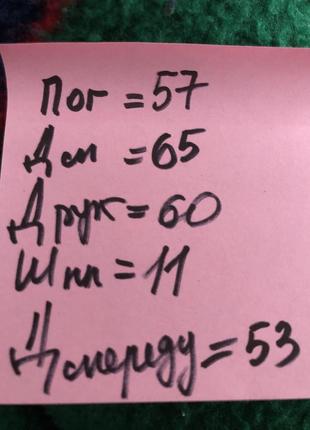 Пог = 57
Дсп = 65
Друк = 60
Шпл = 11
Дспереду = 53